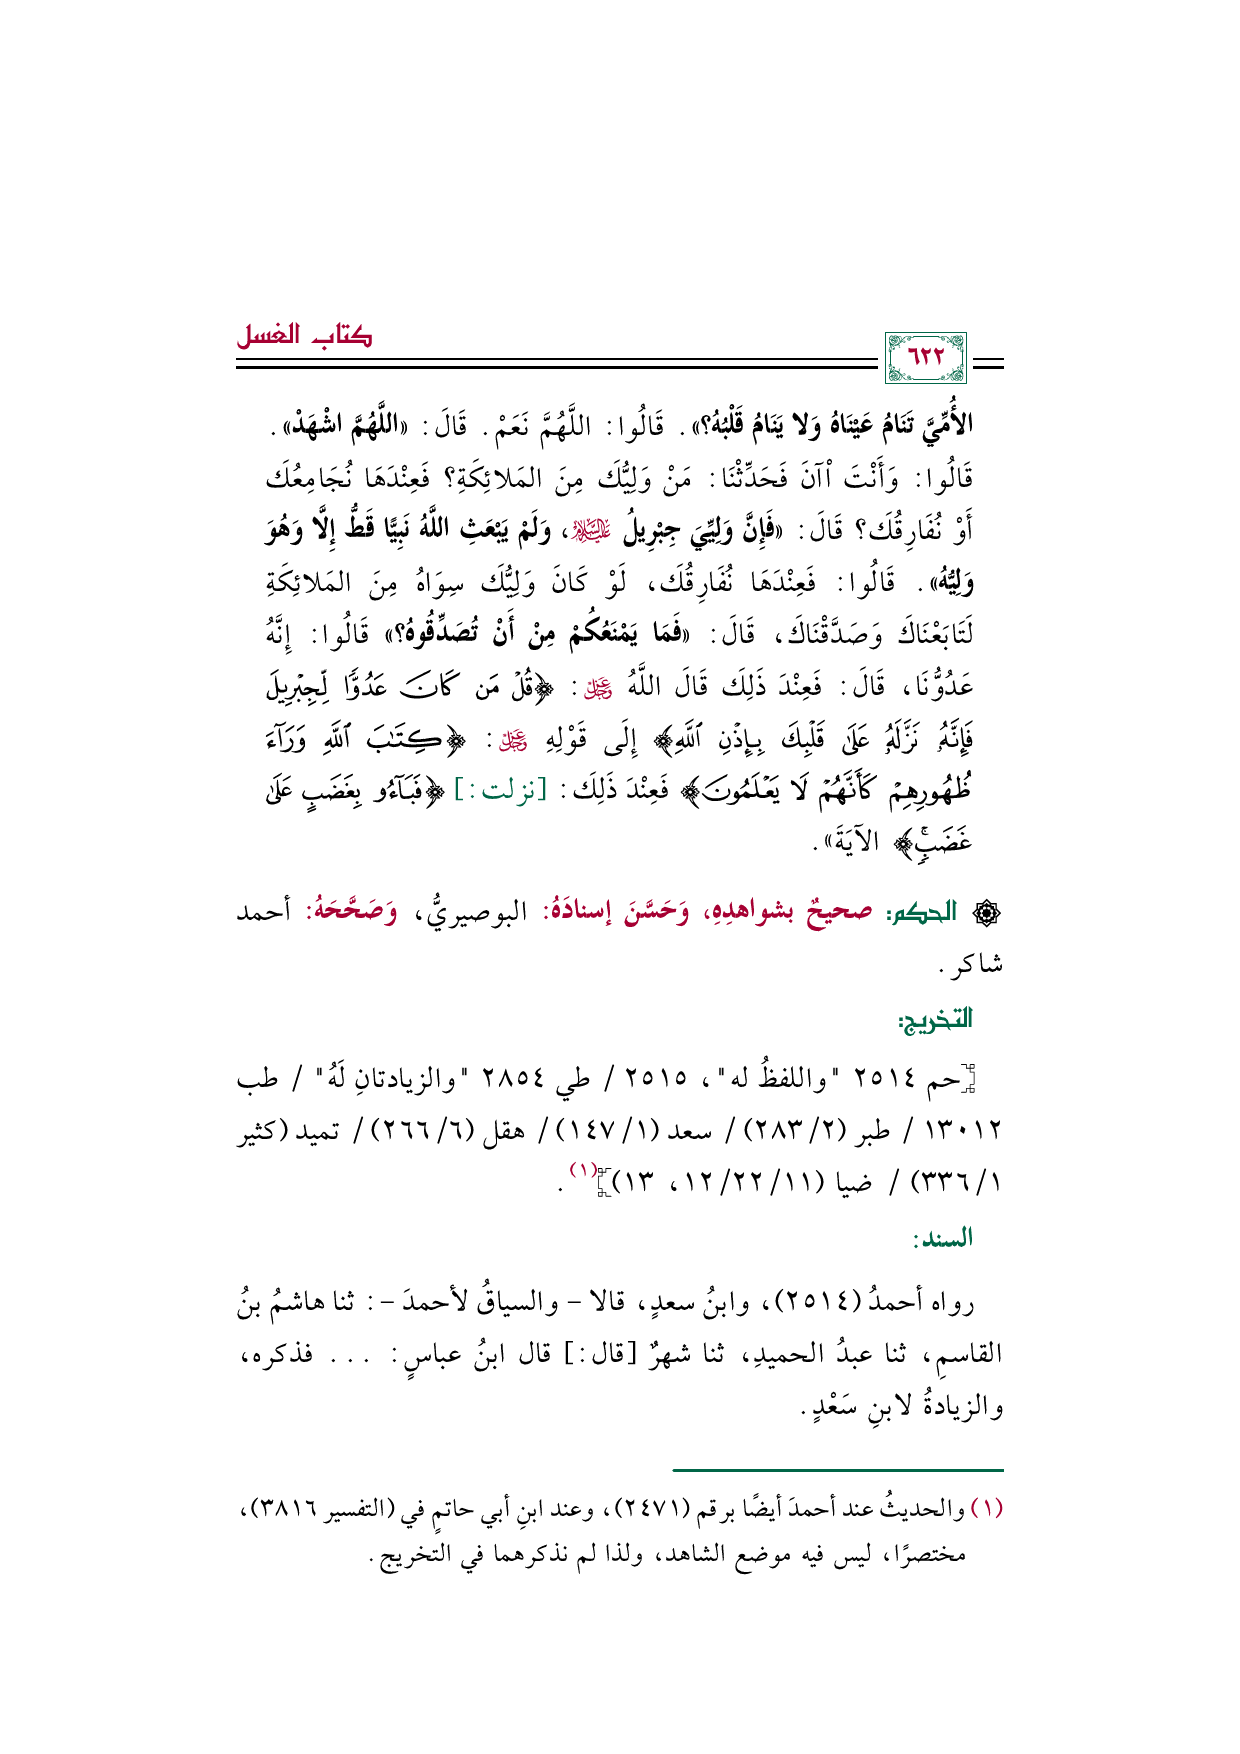 كتاب الغسل
٦٢٢
الأُمِّيَّ تَنَامُ عَيْنَاهُ وَلا يَنَامُ قَلْبُهُ؟». قَالُوا: اللَّهُمَّ نَعَمْ. قَالَ: «اللَّهُمَّ اشْهَدْ».
قَالُوا: وَأَنْتَ اْلآنَ فَحَدِّثْنَا: مَنْ وَلِيُّكَ مِنَ المَلائِكَةِ؟ فَعِنْدَهَا نُجَامِعُكَ
أَوْ نُفَارِقُكَ؟ قَالَ: «فَإِنَّ وَلِيِّيَ جِبْرِيلُ عَلَيْهِ السَّلَامُ، وَلَمْ يَبْعَثِ اللَّهُ نَبِيًّا قَطُّ إِلَّا وَهُوَ
وَلِيُّهُ». قَالُوا: فَعِنْدَهَا نُفَارِقُكَ، لَوْ كَانَ وَلِيُّكَ سِوَاهُ مِنَ المَلائِكَةِ
لَتَابَعْنَاكَ وَصَدَّقْنَاكَ، قَالَ: «فَمَا يَمْنَعُكُمْ مِنْ أَنْ تُصَدِّقُوهُ؟» قَالُوا: إِنَّهُ
عَدُوُّنَا، قَالَ: فَعِنْدَ ذَلِكَ قَالَ اللَّهُ عَزَّ وَجَلَّ: ﴿قُلْ مَن كَانَ عَدُوًّا لِّجِبْرِيلَ
فَإِنَّهُۥ نَزَّلَهُۥ عَلَىٰ قَلْبِكَ بِإِذْنِ ٱللَّهِ﴾ إِلَى قَوْلِهِ عَزَّ وَجَلَّ: ﴿كِتَٰبَ ٱللَّهِ وَرَآءَ
ظُهُورِهِمْ كَأَنَّهُمْ لَا يَعْلَمُونَ﴾ فَعِنْدَ ذَلِكَ: [نزلت:] ﴿فَبَآءُو بِغَضَبٍ عَلَىٰ
غَضَبٍۚ﴾ الآيَةَ».
الحكم: صحيحٌ بشواهدِهِ، وَحَسَّنَ إسنادَهُ: البوصيريُّ، وَصَحَّحَهُ: أحمد
شاكر.
التخريج:
[حم ٢٥١٤ "واللفظُ له"، ٢٥١٥ / طي ٢٨٥٤ "والزيادتانِ لَهُ" / طب
١٣٠١٢ / طبر (٢/ ٢٨٣) / سعد (١/ ١٤٧) / هقل (٦/ ٢٦٦) / تميد (كثير
١/ ٣٣٦) / ضيا (١١/ ٢٢/ ١٢، ١٣)](١).
السند:
رواه أحمدُ (٢٥١٤)، وابنُ سعدٍ، قالا - والسياقُ لأحمدَ -: ثنا هاشمُ بنُ
القاسمِ، ثنا عبدُ الحميدِ، ثنا شهرٌ [قال:] قال ابنُ عباسٍ: ... فذكره،
والزيادةُ لابنِ سَعْدٍ.
(١) والحديثُ عند أحمدَ أيضًا برقم (٢٤٧١)، وعند ابنِ أبي حاتمٍ في (التفسير ٣٨١٦)،
مختصرًا، ليس فيه موضع الشاهد، ولذا لم نذكرهما في التخريج.